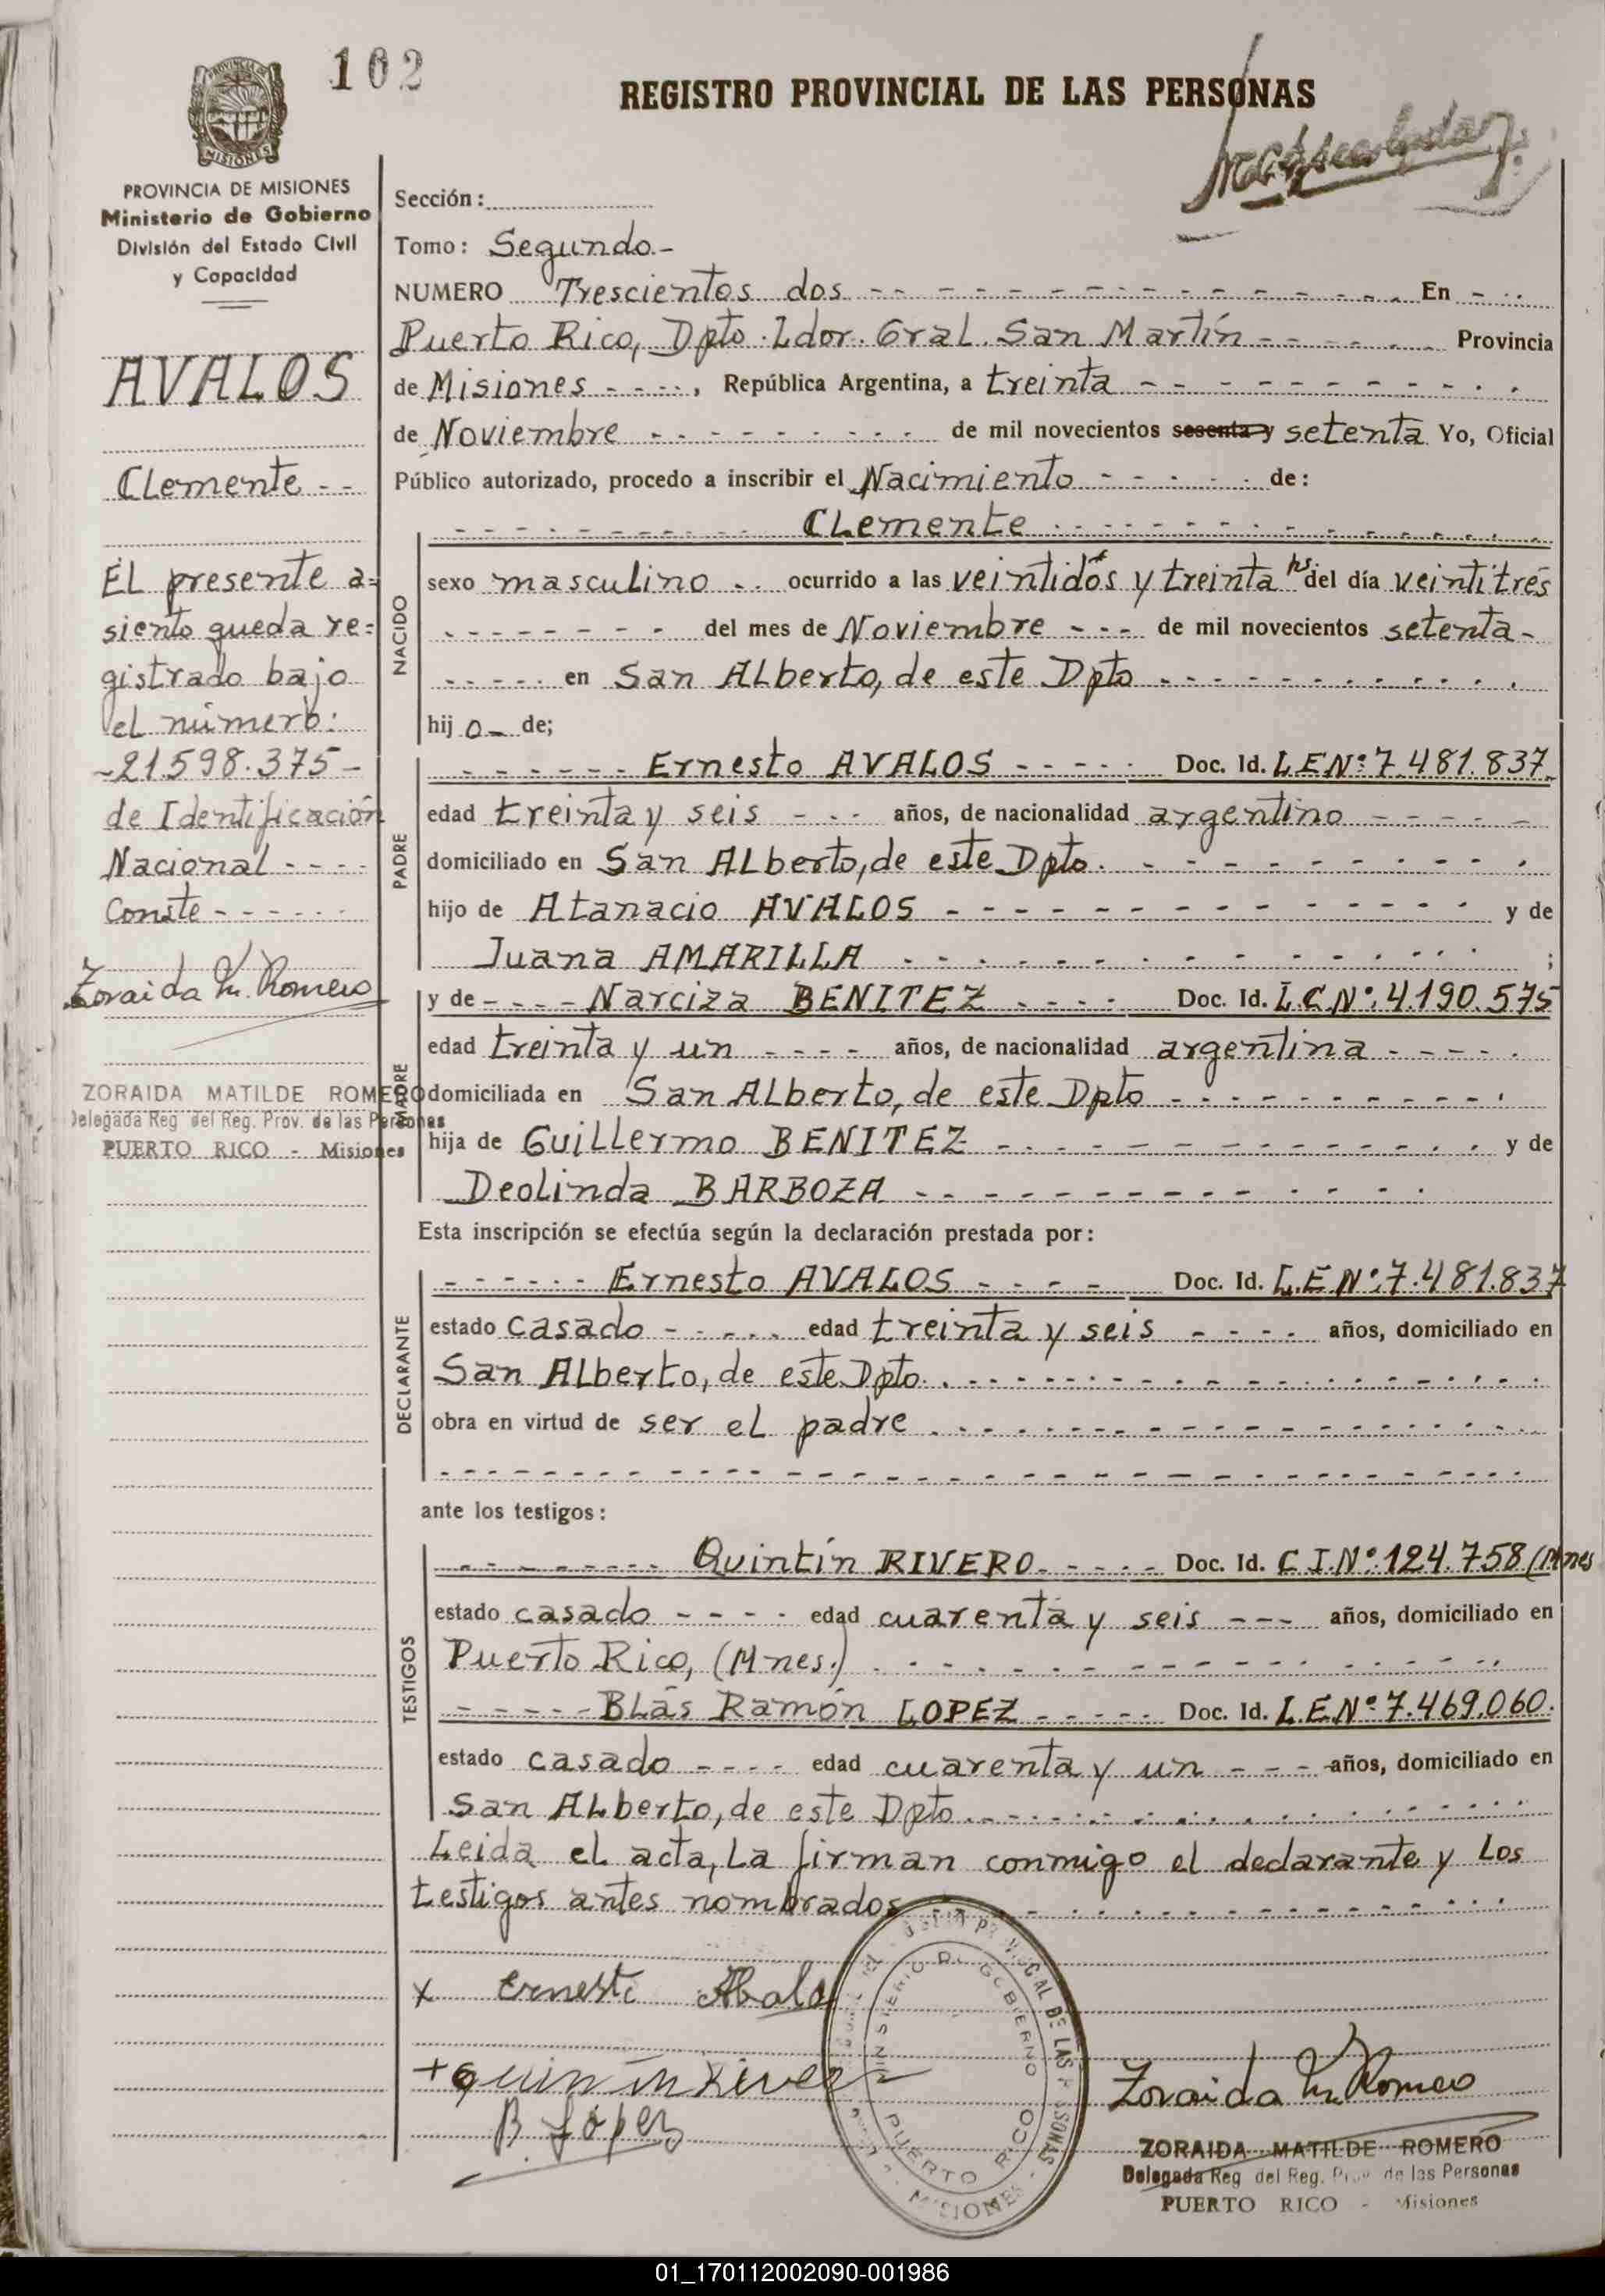 102
REGISTRO PROVINCIAL DE LAS PERSONAS
MISIONES
PROVINCIA DE MISIONES
Ministerio de Gobierno
División del Estado Civil
y Capacidad
AVALOS
Clemente - -
El presente a=
siento queda re=
gistrado bajo
el número:
-21.598.375-
de Identificación
Nacional - - - -
Conste - - - - - -
Zoraida M. Romero
ZORAIDA MATILDE ROMERO
Delegada Reg del Reg. Prov. de las Personas
PUERTO RICO - Misiones
Sección:
Tomo: Segundo-
NUMERO Trescientos dos - - - En - - -
Puerto Rico, Dpto. Ldor. Gral. San Martín - - - Provincia
de Misiones - - -, República Argentina, a treinta - - -
de Noviembre - - - de mil novecientos sesenta y setenta Yo, Oficial
Público autorizado, procedo a inscribir el Nacimiento - - - de:
NACIDO
- - - Clemente - - -
sexo masculino - - ocurrido a las veintidós y treinta hs del día veintitrés
- - - del mes de Noviembre - - - de mil novecientos setenta-
- - - en San Alberto, de este Dpto - - -
hij o- de;
PADRE
- - - Ernesto AVALOS - - - Doc. Id. L.E.Nº: 7.481.837.
edad treinta y seis - - - años, de nacionalidad argentino - - -
domiciliado en San Alberto, de este Dpto. - - -
hijo de Atanacio AVALOS - - - y de
Juana AMARILLA - - - ;
MADRE
y de - - - Narciza BENITEZ - - - Doc. Id. L.C.Nº: 4.190.575
edad treinta y un - - - años, de nacionalidad argentina - - -
domiciliada en San Alberto, de este Dpto - - -
hija de Guillermo BENITEZ - - - y de
Deolinda BARBOZA - - -
Esta inscripción se efectúa según la declaración prestada por:
DECLARANTE
- - - Ernesto AVALOS - - - Doc. Id. L.E.Nº: 7.481.837
estado casado - - - edad treinta y seis - - - años, domiciliado en
San Alberto, de este Dpto. - - -
obra en virtud de ser el padre - - -
ante los testigos:
TESTIGOS
- - - Quintín RIVERO - - - Doc. Id. C.I.Nº: 124.758 (Mnes
estado casado - - - edad cuarenta y seis - - - años, domiciliado en
Puerto Rico, (Mnes.) - - -
- - - Blás Ramón LOPEZ - - - Doc. Id. L.E.Nº: 7.469.060.
estado casado - - - edad cuarenta y un - - - años, domiciliado en
San Alberto, de este Dpto. - - -
Leida el acta, la firman conmigo el declarante y los
testigos antes nombrados - - -
x Ernesto Abalo
+ Quintin Rivero
B. Lopez
MINISTERIO DE GOBIERNO
DE LAS PERSONAS
PUERTO RICO
MISIONES
Zoraida M. Romero
ZORAIDA MATILDE ROMERO
Delegada Reg del Reg. Prov de las Personas
PUERTO RICO - Misiones
01_170112002090-001986